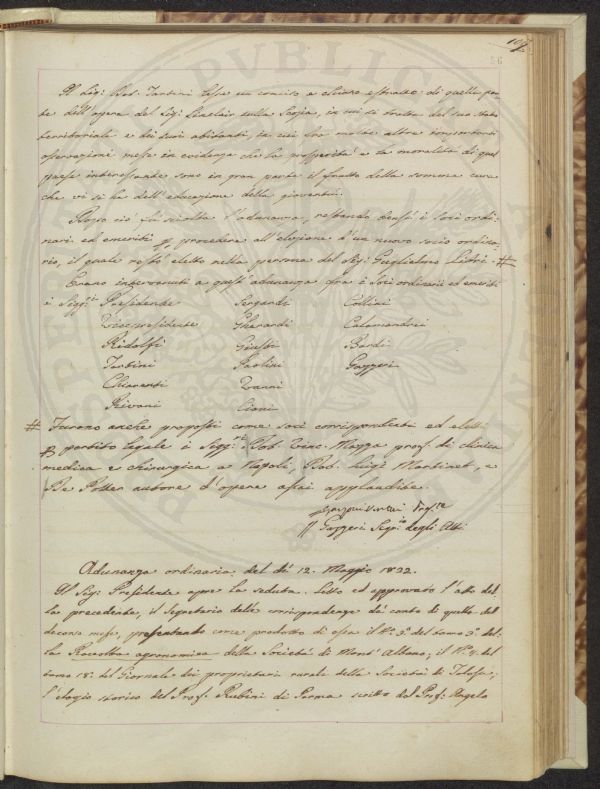 107
56
Il Sig: Cav. Tartini lesse un conciso e chiaro estratto di quella par-
te dell'opera del Sig: Sinclair sulla Scozia, in cui si tratta del suo stato
territoriale e dei suoi abitanti, in cui fra molte altre importanti
osservazioni messe in evidenza che la prosperità e la moralità di quel
paese interessante sono in gran parte il frutto della somma cura
che vi si ha dell'educazione della gioventù.
Dopo ciò fu sciolta l'adunanza, restando i Soci ordi-
nari ed emeriti p procedere all'elezione d'un nuovo socio ordina-
rio, il quale restò eletto nella persona del Sig: Guglielmo Libri. #
Erano intervenuti a quest'adunanza fra i Soci ordinari ed emeriti
i Sigg:ri Presidente Sergardi Collini
Vicepresidente Gherardi Calamandrei
Ridolfi Giusti Bardi
Tartini Paolini Gazzeri
Chiarenti Zanni
Rivani Ciani
# Furono anche proposti come soci corrispondenti ed eletti
p partito legale i Sigg:ri Dot. Vinc. Mazza prof. di clinica
medica e chirurgica a Napoli, Dot. Luigi Martinet, e
De Potter autore d'opere assai applaudite.
G. Gazzeri Seg:rio degli Atti
Adunanza ordinaria del dì 12. Maggio 1822.
Il Sig: Presidente apre la seduta. Letto ed approvato l'atto del-
la precedente, il Segretario delle corrispondenze dà conto di quelle del
decorso mese, presentando come prodotto di essa il N.o 3.o del tomo 3.o del-
la Raccolta agronomica della Società di Mont'Albano; il N.o 4. del
tomo 18.o del Giornale dei proprietari rurali della Società di Tolosa;
l'elogio storico del Prof. Rubini di Parma scritto dal Prof: Angelo